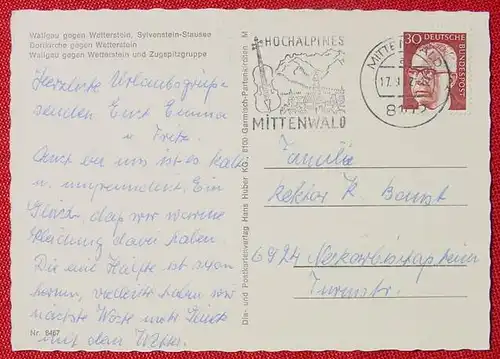 Wallgau gegen Wetterstein, Sylvenstein-Stausee
Dorfkirche gegen Wetterstein
Wallgau gegen Wetterstein und Zugspitzgruppe
Herzliche Urlaubsgrüße
senden Euch Emma
u. Fritz.
Auch bei uns ist es kalt
u. unfreundlich. Ein
Glück, daß wir warme
Kleidung dabei haben.
Die eine Hälfte ist schon
herum, vielleicht haben wir
nächste Woche mehr Glück
mit dem Wetter.
Nr. 8467
Die- und Postkartenverlag Hans Huber KG, 8100 Garmisch-Partenkirchen M
HOCHALPINES
MITTENWALD
30
DEUTSCHE
BUNDESPOST
Familie
Rektor K.
6924 Neckarbischofsheim
Turmstr.